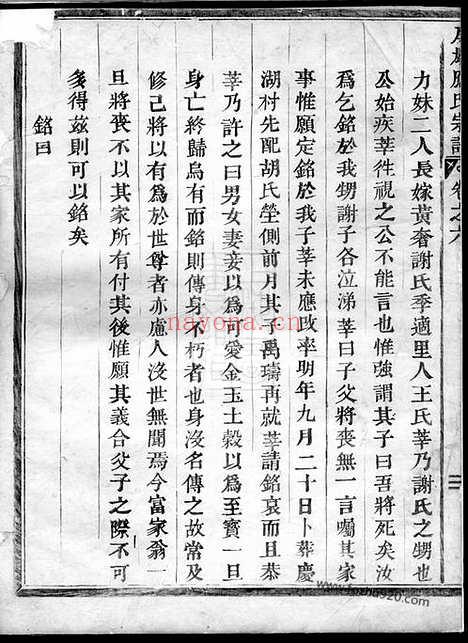 力妹二人長嫁黃奢謝氏季適里人王氏莘乃謝氏之甥也
公始疾莘徃視之公不能言也惟強謂其子曰吾將死矣汝
爲乞銘於我甥謝子各泣涕莘曰子父將喪無一言囑其家
事惟願定銘於我子莘未應改率明年九月二十日卜葬慶
湖村先配胡氏塋側前月其子禹璹再就莘請銘哀而且恭
莘乃許之曰男女妻妾以爲可愛金玉土穀以爲至寶一旦
身亡終歸烏有而銘則傳身不朽者也身沒名傳之故常及
修己將以有爲於世尊者亦慮人沒世無聞焉今富家翁一
旦將喪不以其家所有付其後惟願其義合父子之際不可
多得茲則可以銘矣
銘曰
氏宗譜
卷之六
nayona.cn
www.fozhu920.com